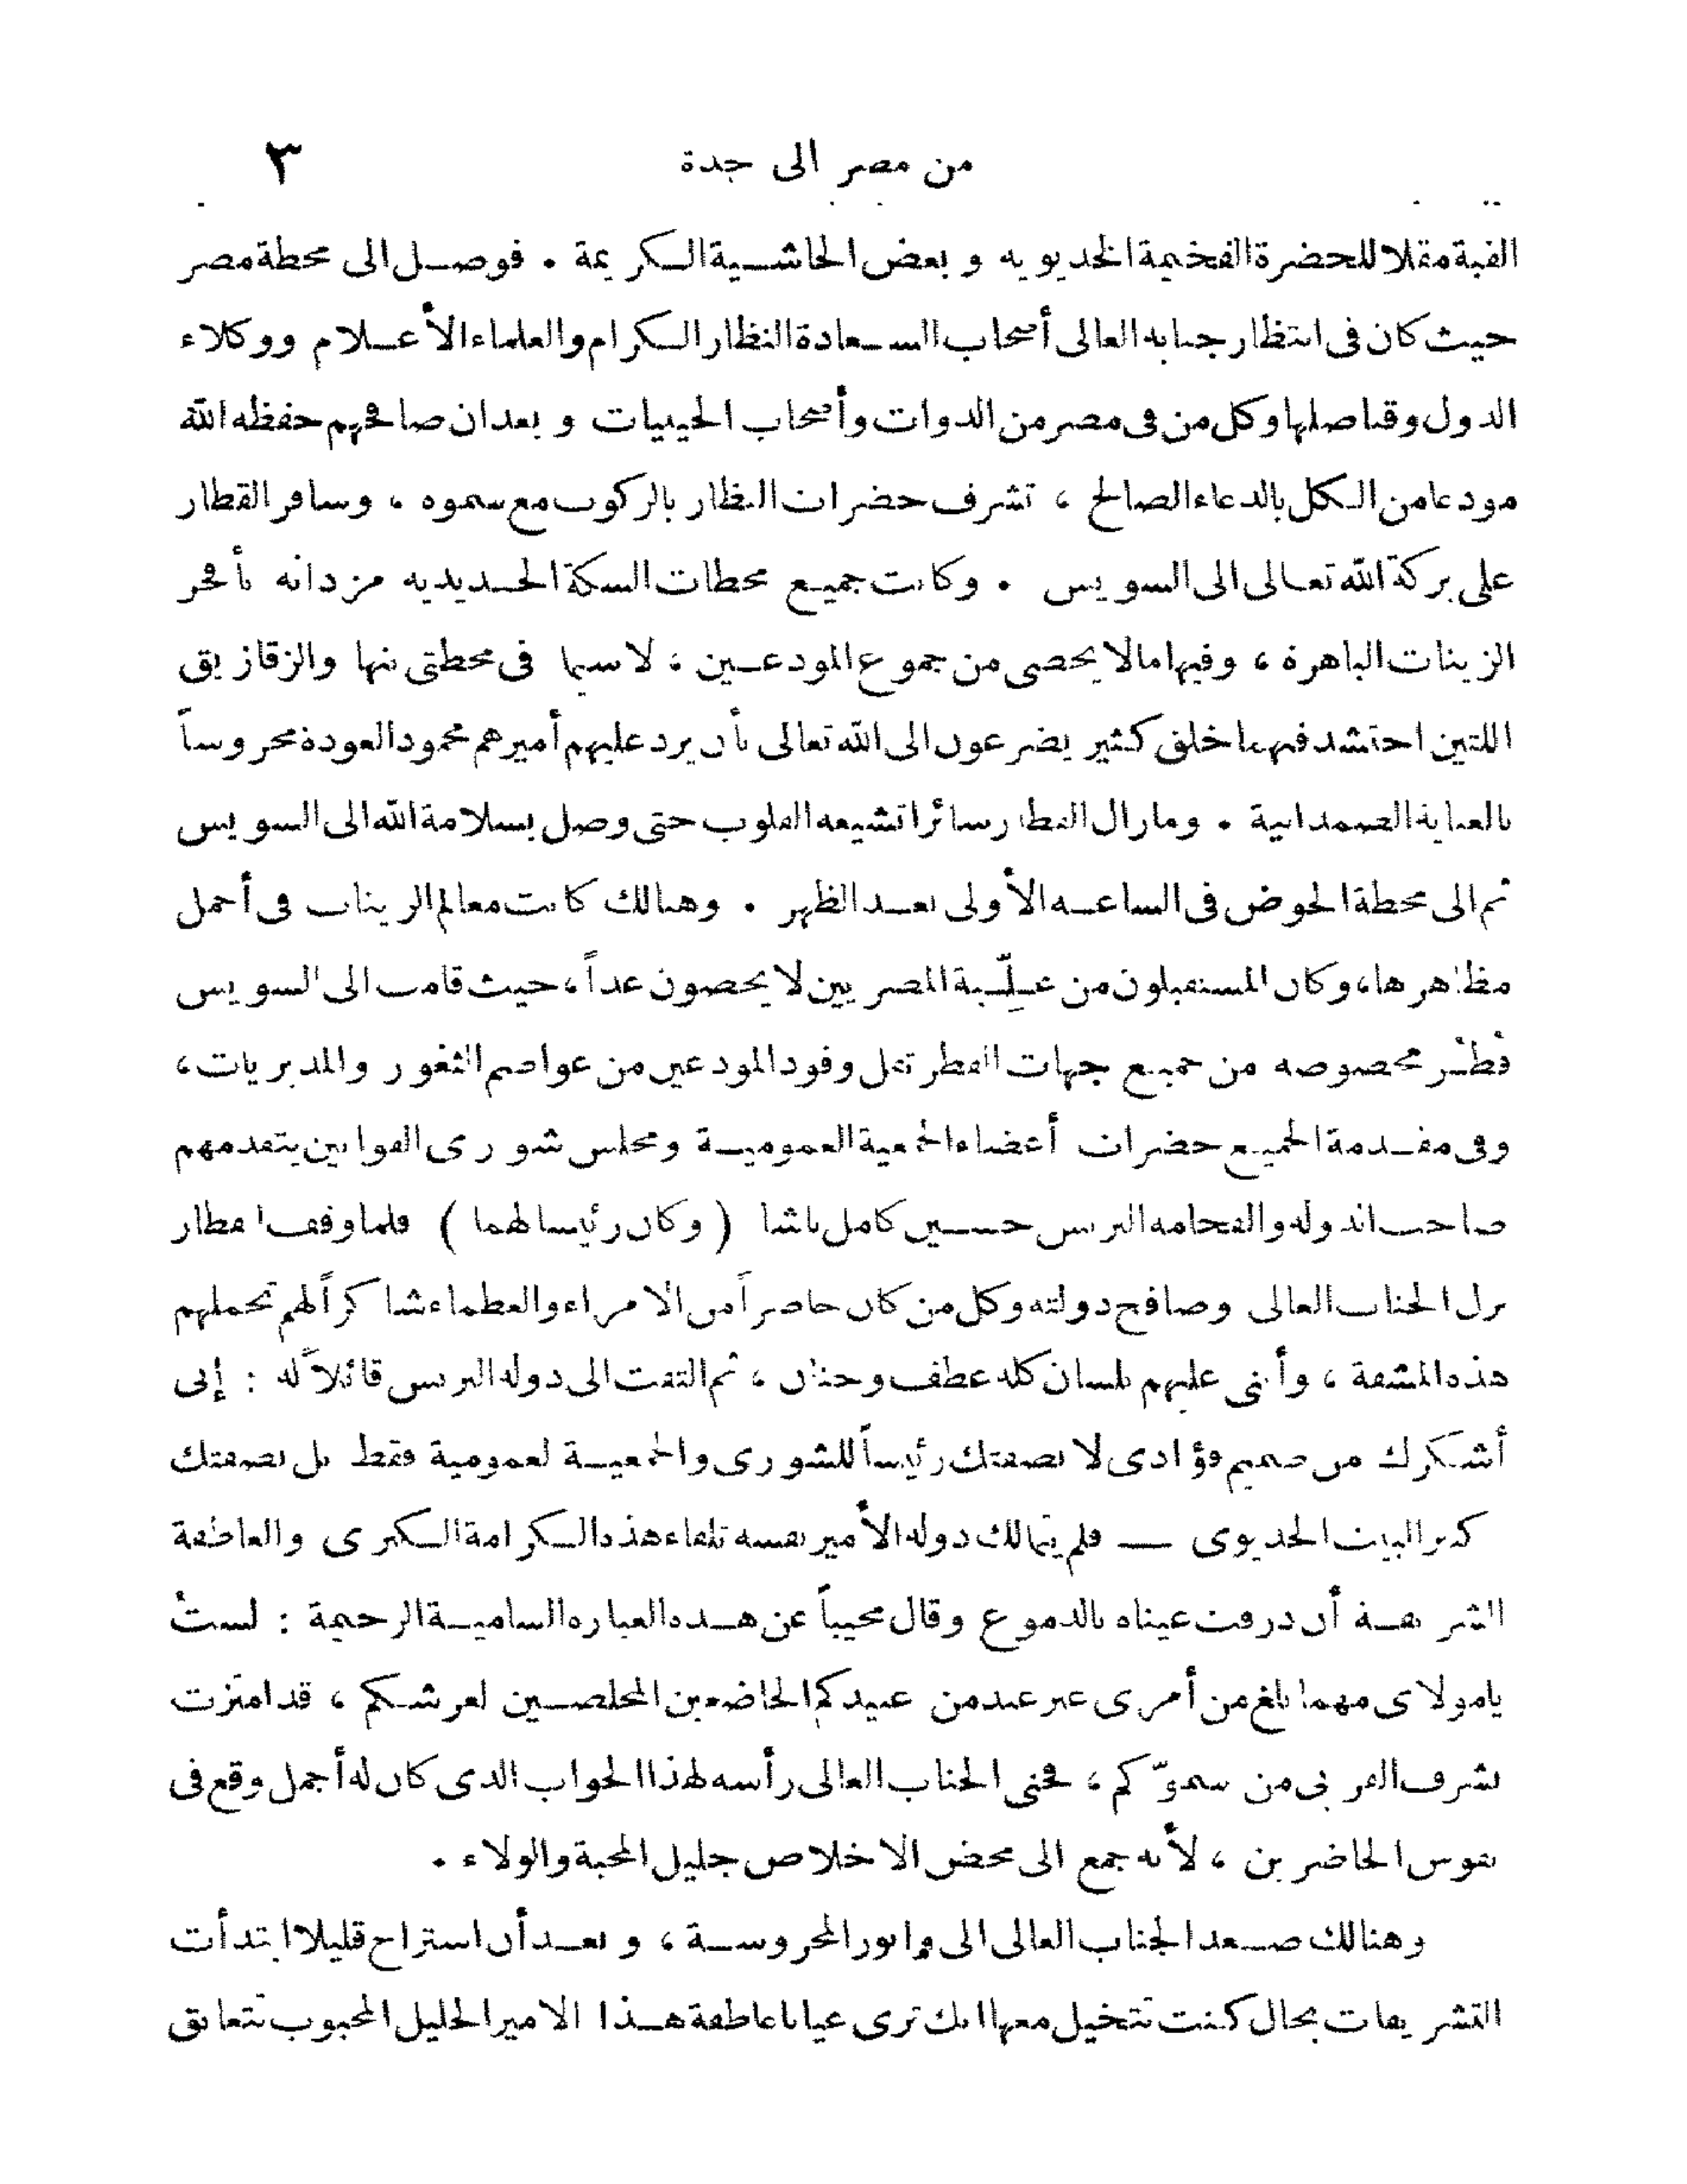 من مصر الى جدة ٣
القبة مقلا للحضرة الفخيمة الخديويه وبعض الحاشية الكريمة . فوصل الى محطة مصر
حيث كان فى انتظار جنابه العالى أصحاب السعادة النظار الكرام والعلماء الأعلام ووكلاء
الدول وقناصلها وكل من فى مصر من الذوات وأصحاب الحيثيات وبعد ان صافحهم حفظه الله
مودعا من الكل بالدعاء الصالح ، تشرف حضرات النظار بالركوب مع سموه ، وسافر القطار
على بركة الله تعالى الى السويس . وكانت جميع محطات السكة الحديدية مزدانه بأفخر
الزينات الباهرة ، وفيها مالا يحصى من جموع المودعين ، لاسيما فى محطتى بنها والزقازيق
اللتين احتشد فيهما خلق كثير يضرعون الى الله تعالى بأن يرد عليهم أميرهم محمود العودة محروساً
بالعناية الصمدانية . ومازال القطار سائرا تشيعه القلوب حتى وصل بسلامة الله الى السويس
ثم الى محطة الحوض فى الساعه الأولى بعد الظهر . وهنالك كانت معالم الزينات فى أجمل
مظاهرها، وكان المستقبلون من علِّية المصريين لا يحصون عداً ، حيث قامت الى السويس
قُطُر مخصوصه من جميع جهات القطر تقل وفود المودعين من عواصم الثغور والمديريات ،
وفى مقدمة الجميع حضرات أعضاء الجمعية العمومية ومجلس شورى القوانين يتقدمهم
صاحب الدوله والفخامه البرنس حسين كامل باشا ( وكان رئيسا لهما ) فلما وقف القطار
نزل الجناب العالى وصافح دولته وكل من كان حاضراً من الامراء والعظماء شاكراً لهم تحملهم
هذه المشقة ، وأثنى عليهم بلسان كله عطف وحنان ، ثم التفت الى دوله البرنس قائلاً له : إنى
أشكرك من صميم فؤادى لا بصفتك رئيساً للشورى والجمعية العمومية فقط بل بصفتك
كبير البيت الخديوى — فلم يتمالك دوله الأمير نفسه تلقاء هذه الكرامة الكبرى والعاطفة
الشريفة أن ذرفت عيناه بالدموع وقال مجيباً عن هذه العباره السامية الرحيمة : لستُ
يامولاى مهما بلغ من أمرى غير عبد من عبيدكم الخاضعين المخلصين لعرشكم ، قد امتزت
بشرف القربى من سموّكم ، فحنى الجناب العالى رأسه لهذا الجواب الذى كان له أجمل وقع فى
نفوس الحاضرين ، لأنه جمع الى محض الاخلاص جليل المحبة والولاء .
وهنالك صعد الجناب العالى الى وابور المحروسة ، وبعد أن استراح قليلا ابتدأت
التشريفات بحال كنت تتخيل معها انك ترى عيانا عاطفة هذا الامير الجليل المحبوب تتعانق